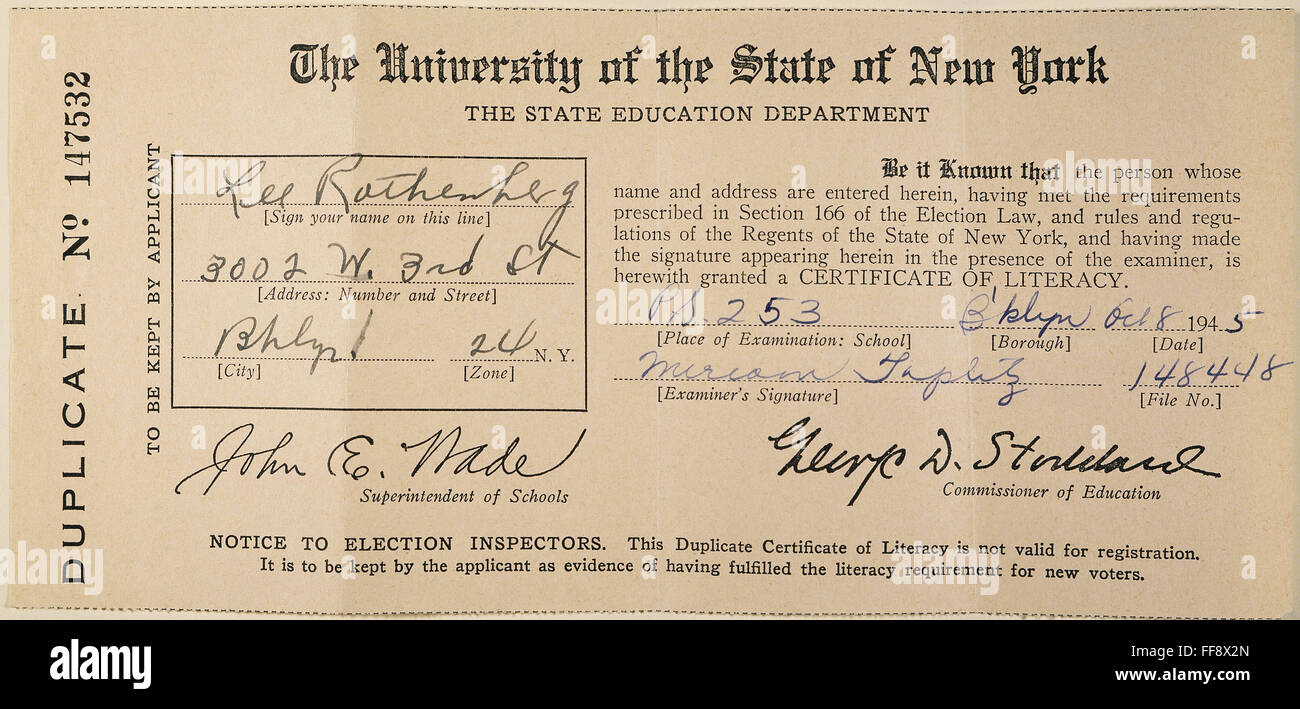 The University of the State of New York
THE STATE EDUCATION DEPARTMENT
DUPLICATE Nº 147532
TO BE KEPT BY APPLICANT
Lee Rothenberg
[Sign your name on this line]
3002 W. 3rd St
[Address: Number and Street]
Bklyn 24 N. Y.
[City] [Zone]
Be it Known that the person whose
name and address are entered herein, having met the requirements
prescribed in Section 166 of the Election Law, and rules and regu-
lations of the Regents of the State of New York, and having made
the signature appearing herein in the presence of the examiner, is
herewith granted a CERTIFICATE OF LITERACY.
P.S. 253 B'klyn Oct 8 1945
[Place of Examination: School] [Borough] [Date]
Miriam Taplitz 148448
[Examiner's Signature] [File No.]
John E. Wade
Superintendent of Schools
George D. Stoddard
Commissioner of Education
NOTICE TO ELECTION INSPECTORS. This Duplicate Certificate of Literacy is not valid for registration.
It is to be kept by the applicant as evidence of having fulfilled the literacy requirement for new voters.
alamy
Image ID: FF8X2N
www.alamy.com